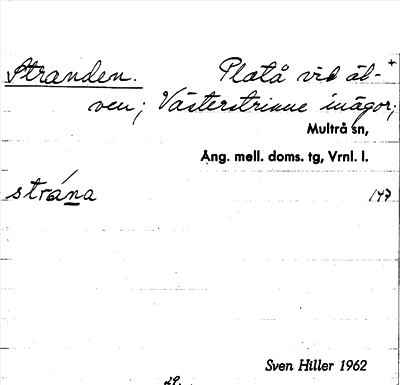 Stranden. Platå vid äl- +
ven; Västerstrinne inägor;
Multrå sn,
Ång. mell. doms. tg, Vrnl. l.
strána 147
Sven Hiller 1962
29.